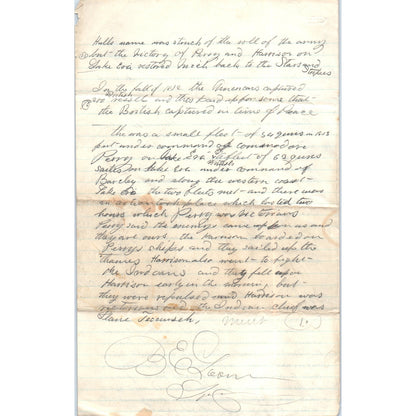 Hulls name was struck of the roll of the army
but the victory of Perry and Harrison on
Lake Erie restored Mich back to the Stars and
Stripes
In the fall of 1812 the Americans captured
British
two vessils and they had
the British captured in time of Peace
the was a small fleet of 54 guns in 1813
put under command of comandore
Perry on Lake Erie a fleet of 63 guns
British
sailed on Lake Erie under command of
Barclay and along the western coast
Lake Erie the two fleets met and there was
an action took place which lasted two
hours which Perry was victorious
Perry said the enemy came upon us and
they are ours. the Harrison boarded on
Perrys shipes and they sailed up the
Thames Harrison also went to fight
the Indians and they fell upon
Harrison early in the morning but
they were repulsed and Harrison was
victorious and the Indian chief was
Slaire Tecumseh.
B E